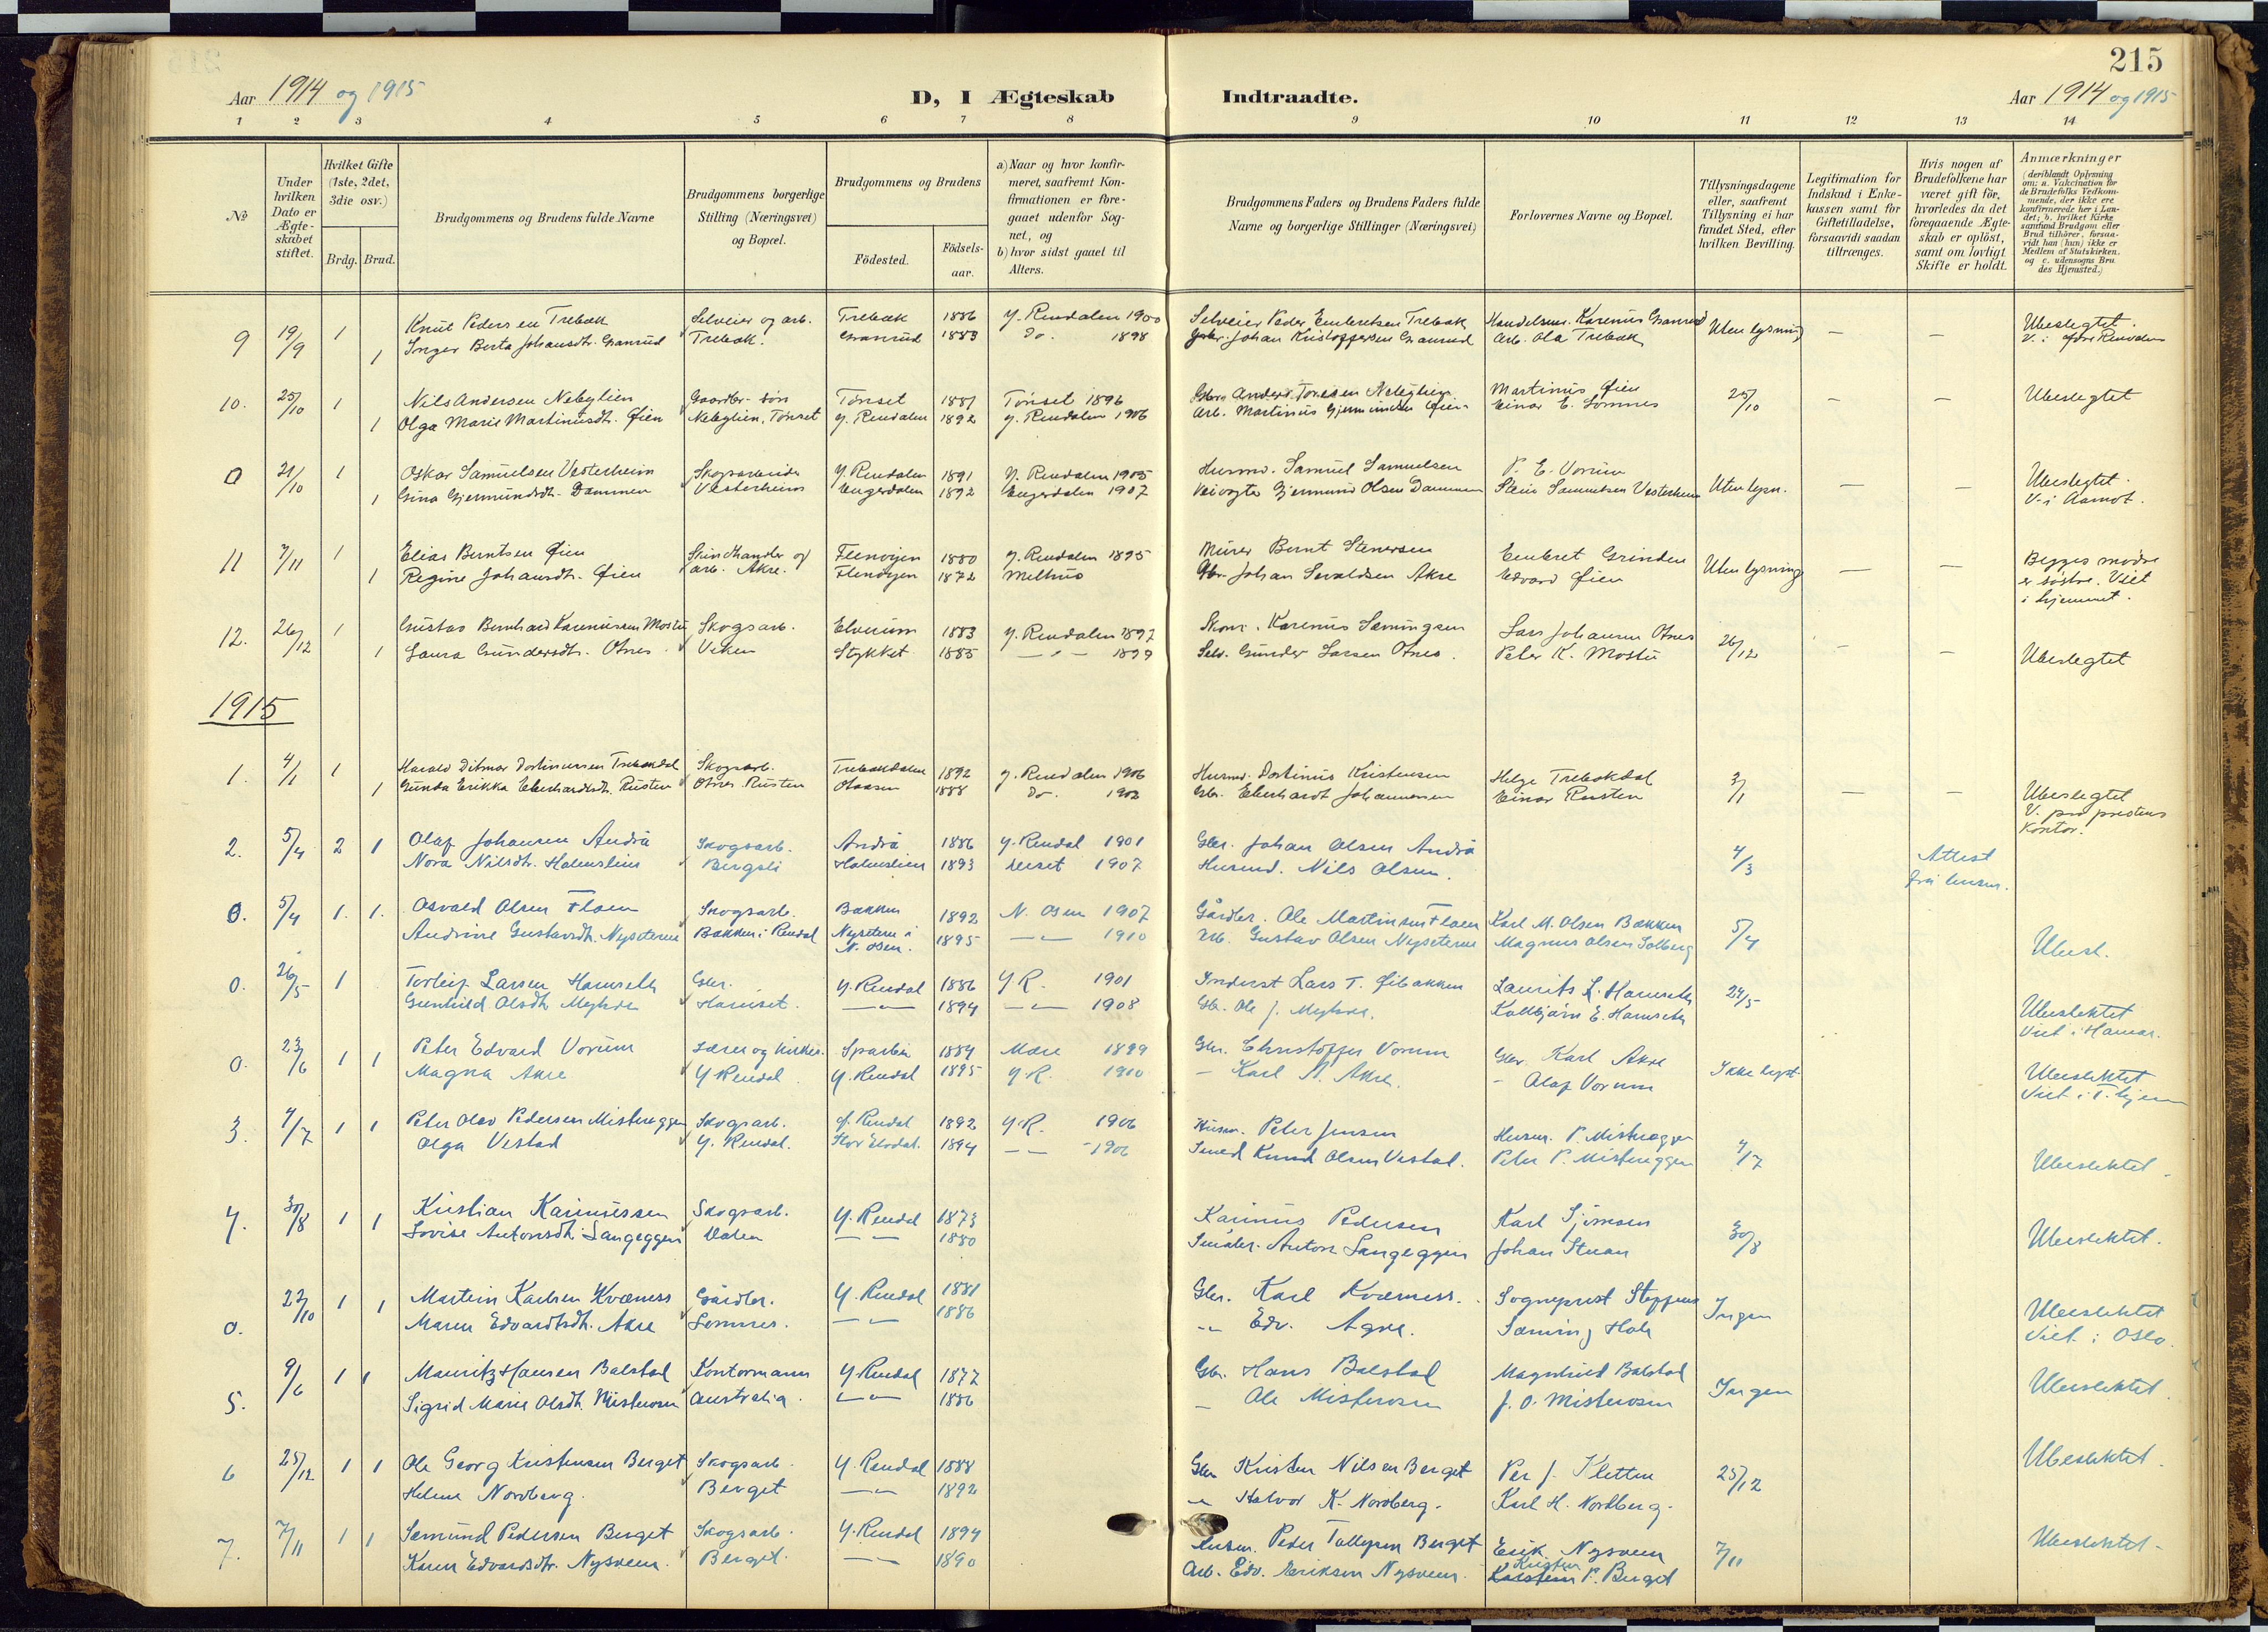 215
Aar 1914 og 1915 D, I Ægteskab Indtraadte. Aar 1914 og 1915
1 2 3 4 5 6 7 8 9 10 11 12 13 14
No Under hvilken Dato er Ægteskabet stiftet. Hvilket Gifte (1ste, 2det, 3die osv.) Brdg. Brud. Brudgommens og Brudens fulde Navne Brudgommens borgerlige Stilling (Næringsvei) og Bopæl. Brudgommens og Brudens Födested. Födselsaar. a) Naar og hvor konfirmeret, saafremt Konfirmationen er foregaaet udenfor Sognet, og b) hvor sidst gaaet til Alters. Brudgommens Faders og Brudens Faders fulde Navne og borgerlige Stillinger (Næringsvei) Forlovernes Navne og Bopæl. Tillysningsdagene eller, saafremt Tillysning ei har fundet Sted, efter hvilken Bevilling. Legitimation for Indskud i Enkekassen samt for Giftetilladelse, forsaavidt saadan tiltrænges. Hvis nogen af Brudefolkene har været gift för, hvorledes da det foregaaende Ægteskab er oplöst, samt om lovligt Skifte er holdt. Anmærkninger (deriblandt Oplysning om: a. Vakcination for de Brudefolks Vedkommende, der ikke ere konfirmerede her i Landet; b. hvilket Kirkesamfund Brudgom eller Brud tilhörer, forsaavidt han (hun) ikke er Medlem af Statskirken, og c. udensogns Brudes Hjemsted.)
9 19/9 1 Knut Pedersen Trebæk Selveier og arb. Trebæk 1886 Y. Rendalen 1900 Selveier Peder Embretsen Trebæk Handelsm. Karenus Granrud Uten lysning — — Ubeslegtet.
1 Inger Berta Johansdtr. Granrud Trebæk. Granrud 1883 Do. 1898 Gbr. Johan Kristoffersen Granrud Arb. Ola Trebæk V. i øvre Rendalen
10. 25/10 1 Nils Andersen Nebylien Gaardbr. søn Tønset 1881 Tønset 1896 Martinus Øien 25/10 — — Ubeslegtet
1 Olga Marie Martinusdt. Øien Nebylien, Tønset Y. Rendalen 1892 Y. Rendalen 1906 Arb. Martinus Gjermundsen Øien Einar E. Lomnes
0 21/10 1 Oskar Samuelsen Vesterheim Skogsarbeider Y Rendalen 1891 Y. Rendalen 1905 Husmd. Samuel Samuelsen P. E. Vorum Uten lysn. — — Ubeslegtet.
1 Gina Gjermundsdt. Dammen Vesterheim Engerdalen 1892 Engerdalen 1907 Veivogter Gjermund Olsen Dammen Stein Samuelsen Vesterheim V. i Aamot.
11 7/11 1 Elias Berntsen Øien Skindhandler og Flenøyen 1880 Y. Rendalen 1895 Murer Bernt Stenersen Embret Grinden Uten lysning — — Begges mødre
1 Regine Johansdt. Øien arb. Akre. Flenøyen 1872 Melhus Gbr. Johan Sevaldsen Akre Edvard Øien er søstre. Viet
i hjemmet.
12. 26/12 1 Gustav Bernhard Karenussen Mostu Skogsarb. Elverum 1883 Y. Rendalen 1897 Karenus Sæmingsen Lars Johansen Otnes 26/12 — — Ubeslegtet
1 Laura Gundersdt. Otnes Veken Stykket 1885 — " — 1899 Selv. Gunder Larsen Otnes. Peter K. Mostu
1915
1. 4/1 1 Harald Ditmar Dortinussen Trebækdal Skogsarb. Trebækdalen 1892 Y. Rendalen 1906 Husmd. Dortinus Kristensen Helge Trebækdal 3/1 — — Ubeslegtet
1 Gunda Erikka Eberhardtsdt. Rusten Otnes Rusten 1888 Do. 1902 Gbr. Eberhardt Johannesen Einar Rusten V. paa prestens
kontor.
2. 5/4 2 1 Olaf Johansen Andrå Skogsarb. Andrå 1886 Y. Rendal 1901 Gbr. Johan Olsen Andrå 4/3 Attest
Nora Nilsdt. Holmslien Bergsli Holmslien 1893 1907 Husmd. Nils Olsen. fra lensm.
0. 5/4 1. 1. Osvald Olsen Floen Skogsarb. Bakken 1892 N. Osen 1907 Gårdbr. Ole Martinsen Floen Karl M. Olsen Bakken 5/4 Ubesl.
Andrine Gustavsdt. Nyseteren Bakken i Rendal Nyseteren i 1895 — " — 1910 Arb. Gustav Olsen Nyseteren Magnus Olsen Solberg
N. Osen.
0. 26/5 1 Torleif Larsen Harseth Gbr. Y. Rendal 1886 Y R. 1901 Inderst Lars T. Øibakken Laurits L. Harseth 24/5 Ubeslektet
Gunhild Olsdt. Harset. — " — 1894 — " — 1908 Gb. Ole J. Kolbjørn E. Harseth Viet i Hamar.
0. 23/6 1 1 Peter Edvard Vorum Lærer og kirkes. Sparbu 1884 Mære 1899 Gbr. Christoffer Vorum Gbr. Karl Akre Ikke lyst Ubeslektet
Magna Akre Y Rendal Y. Rendal 1895 Y R. 1910 — Karl A. Akre. — Olaf Vorum Viet i T.hjem
3. 4/7 1 1 Peter Olav Pedersen Misterøggen Skogsarb. Y. Rendal 1892 Y R. 1906 Husm. Peter Jensen Husm. P. Misterøggen 4/7 Ubeslektet.
Olga Vestad Y. Rendal. Stor Elvdal. 1894 — — 1906 Smed Knud Olsen Vestad. Peter P. Misterøggen
4. 30/8 1 1 Kristian Karinussen Skogsarb. Y. Rendal 1873 Karinus Pedersen Karl 30/8 Ubeslektet.
Lovise Antonsdt. Langeggen — — 1880 Anton Langeggen Johan Stuan
0. 22/10 1 1 Martin Karlsen Kværness Gårdbr. Y. Rendal 1881 Gbr. Karl Kværness. Sogneprest Steffens Ingen Ubeslektet
Maren Edvardsdt. Akre Lomnes. — " — 1886 " Edv. Agre. Sæming Viet i Oslo.
5. 9/6 1 1 Mauritz Hansen Balstad Kontormann Y Rendal 1877 Gbr. Hans Balstad Magnhild Balstad Ingen Ubeslektet.
Sigrid Marie Olsdt. Misterosen Australia. — " — 1886 — Ole Misterosen J. O. Misterosen
6 25/12 1 1 Ole Georg Kristensen Berget Skogsarb. Y. Rendal 1888 Gbr Kristen Nilsen Berget Per J. Kletten 25/12 Ubeslektet.
Helene Nordberg. Berget — " — 1892 " Halvor K. Nordberg. Karl H. Nordberg.
7. 7/11 1 1 Semund Pedersen Berget Skogsarb. Y. Rendal 1894 Husm. Peder Tollefsen Berget Erik Nysveen 7/11 Ubeslektet.
Karen Edvardsdt. Nysveen. Berget. — — 1890 Arb. Edv. Eriksen Nysveen. Kristen P. Berget